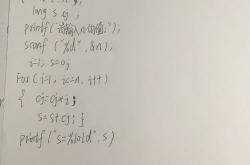 long s cj ;
printf("请输入n的值:");
scanf("%d", &n);
i=1, s=0;
For(i=1, i<=n, i++)
{ cj=cj*i;
s=s+cj; }
printf("s=%10ld", s)